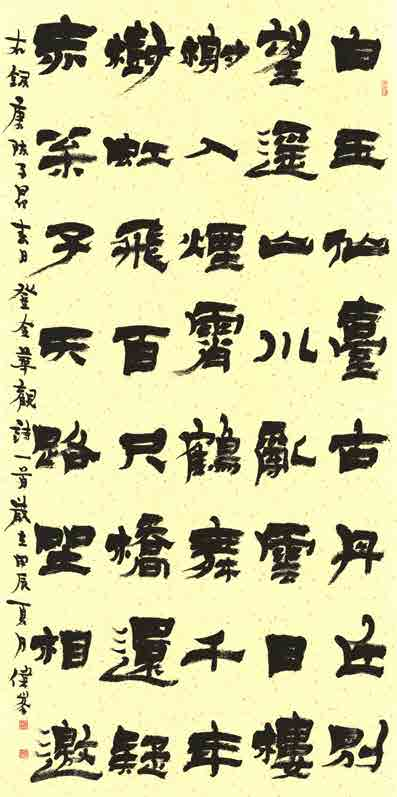 白玉仙臺古丹丘別
望遥山川亂雲日樓
榭入煙霄鶴舞千年
樹虹飛百尺橋還疑
赤枀子天路坐相邀
右錄唐陳子昂春日登金華觀詩一首歲在甲辰夏月